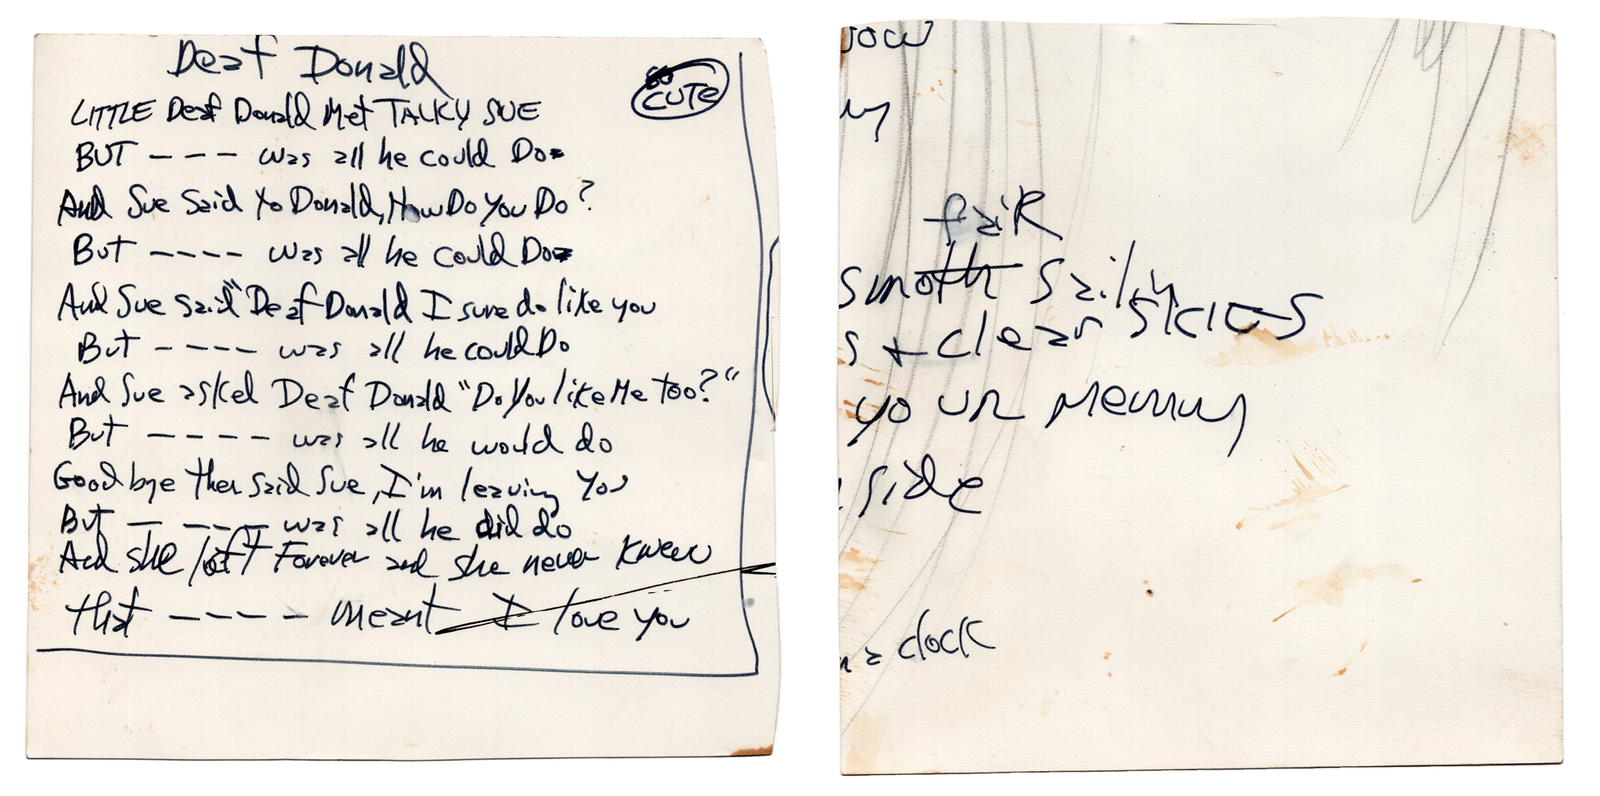 Deaf Donald
SO
CUTE
LITTLE Deaf Donald Met TALKY SUE
BUT ---- was all he could Do
And Sue Said to Donald, How Do You Do?
But ---- was all he could Do
And Sue said "Deaf Donald I sure do like you
But ---- was all he could Do
And Sue asked Deaf Donald "Do You like Me too?"
But ---- was all he would do
Good bye then said Sue, I'm leaving You
But ---- was all he did do
And she left Forever and she never knew
that ---- meant I love you
faiR
smoth Sailn
s + clear skies
your Memury
side
a clock